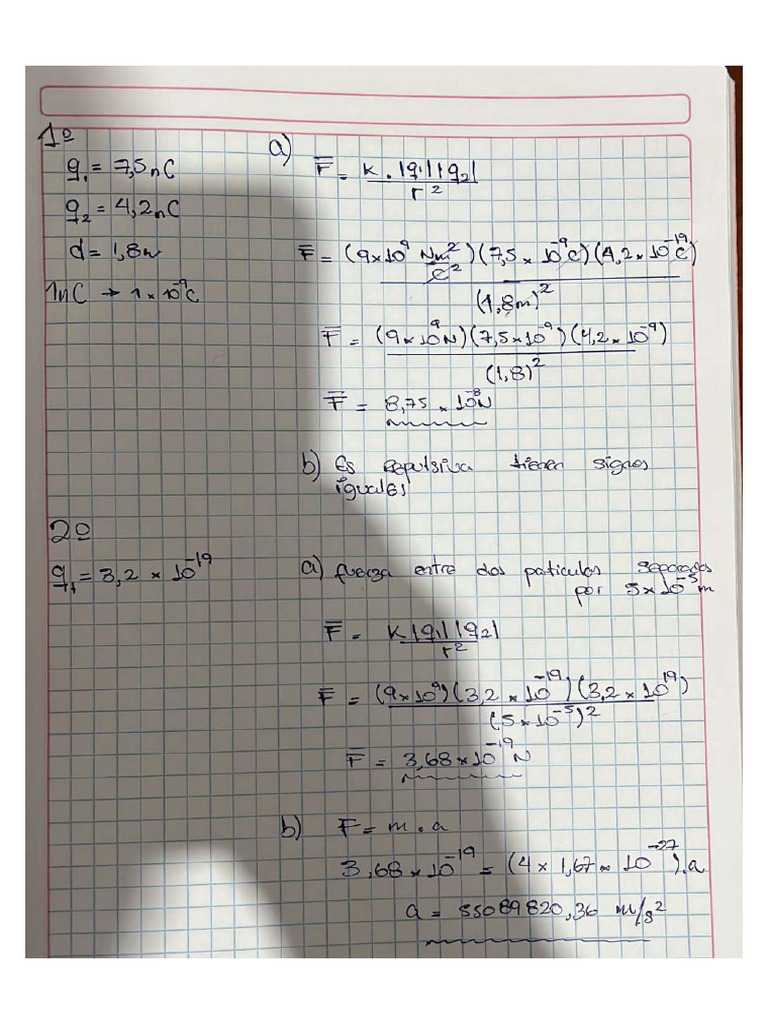 1º
q₁ = 7,5nC
q₂ = 4,2nC
d = 1,8m
1nC → 1 × 10⁻⁹C
a) F = K . |q₁||q₂| / r²
F = (9×10⁹ Nm²/C²)(7,5 × 10⁻⁹C)(4,2 × 10⁻¹⁹C) / (1,8m)²
F = (9×10⁹N)(7,5×10⁻⁹)(4,2×10⁻⁹) / (1,8)²
F = 8,75 × 10⁻⁸N
b) Es Repulsiva tienen signos
iguales
2º
q₁ = 3,2 × 10⁻¹⁹
a) fuerza entre dos paticulos separados
por 5×10⁻⁵m
F = K|q₁||q₂| / r²
F = (9×10⁹)(3,2 × 10⁻¹⁹)(3,2 × 10¹⁹) / (5×10⁻⁵)²
F = 3,68×10⁻¹⁹N
b) F = m . a
3,68×10⁻¹⁹ = (4 × 1,67 × 10⁻²⁷).a
a = 55089820,36 m/s²